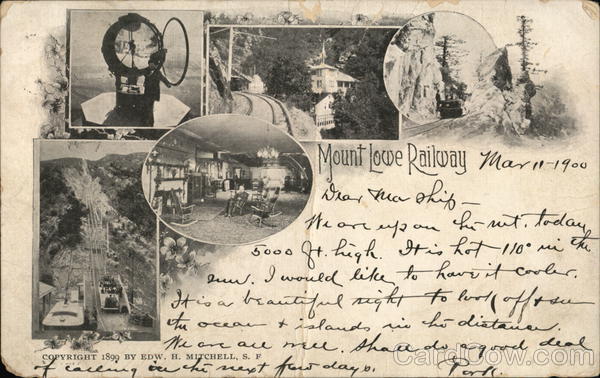 Mount Lowe Railway
Mar 11-1900
Dear Ma Ship-
We are up on the mt. today
5000 ft. high. It is hot 110° in the
sun. I would like to have it cooler.
It is a beautiful sight to look off & see
the ocean & islands in the distance.
We are all well. Shall do a good deal
of calling in the next few days.
COPYRIGHT 1899 BY EDW. H. MITCHELL, S. F.
CardCow.com